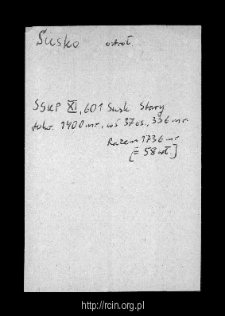 Susko ostroł.
SGKP XI, 601 Susk Stary
folw. 1400 mr., wś 37 os., 336 mr.
Razem 1736 mr
[= 58 wł.]
http://rcin.org.pl